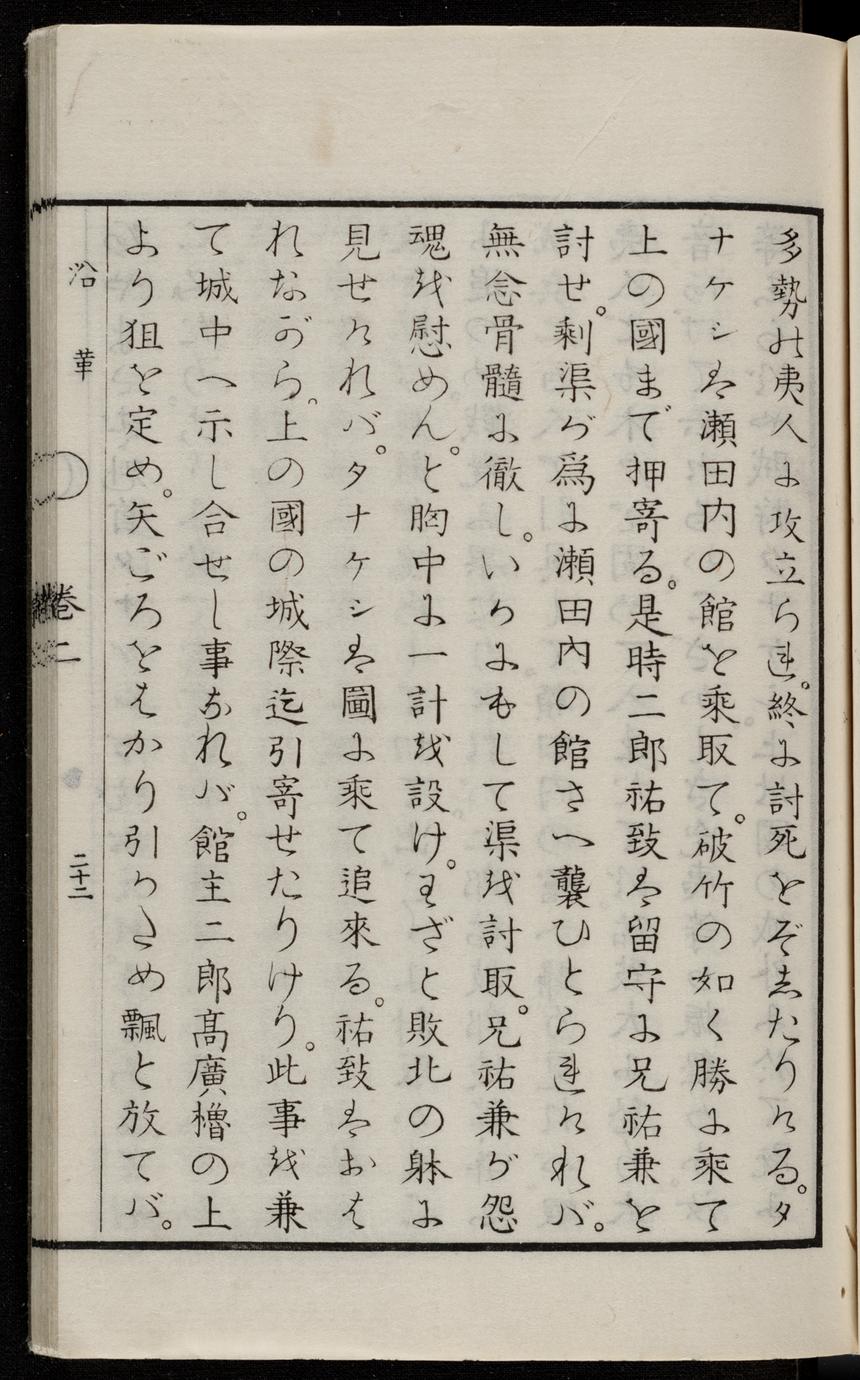 多勢の夷人に攻立られ。終に討死をぞしたりける。タ
ナケシは瀬田内の館を乘取て。破竹の如く勝に乘て
上の國まで押寄る。是時二郎祐致は留守に兄祐兼を
討せ。剩渠が爲に瀬田内の館さへ襲ひとられければ。
無念骨髓に徹し。いかにもして渠を討取。兄祐兼が怨
魂を慰めん。と胸中に一計を設け。わざと敗北の躰に
見せければ。タナケシは圖に乘て追來る。祐致はおは
れながら。上の國の城際迄引寄せたりけり。此事を兼
て城中へ示し合せし事なれば。館主二郎髙廣櫓の上
より狙を定め。矢ごろをはかり引かため飄と放てば。
沿 革
卷二
二十二